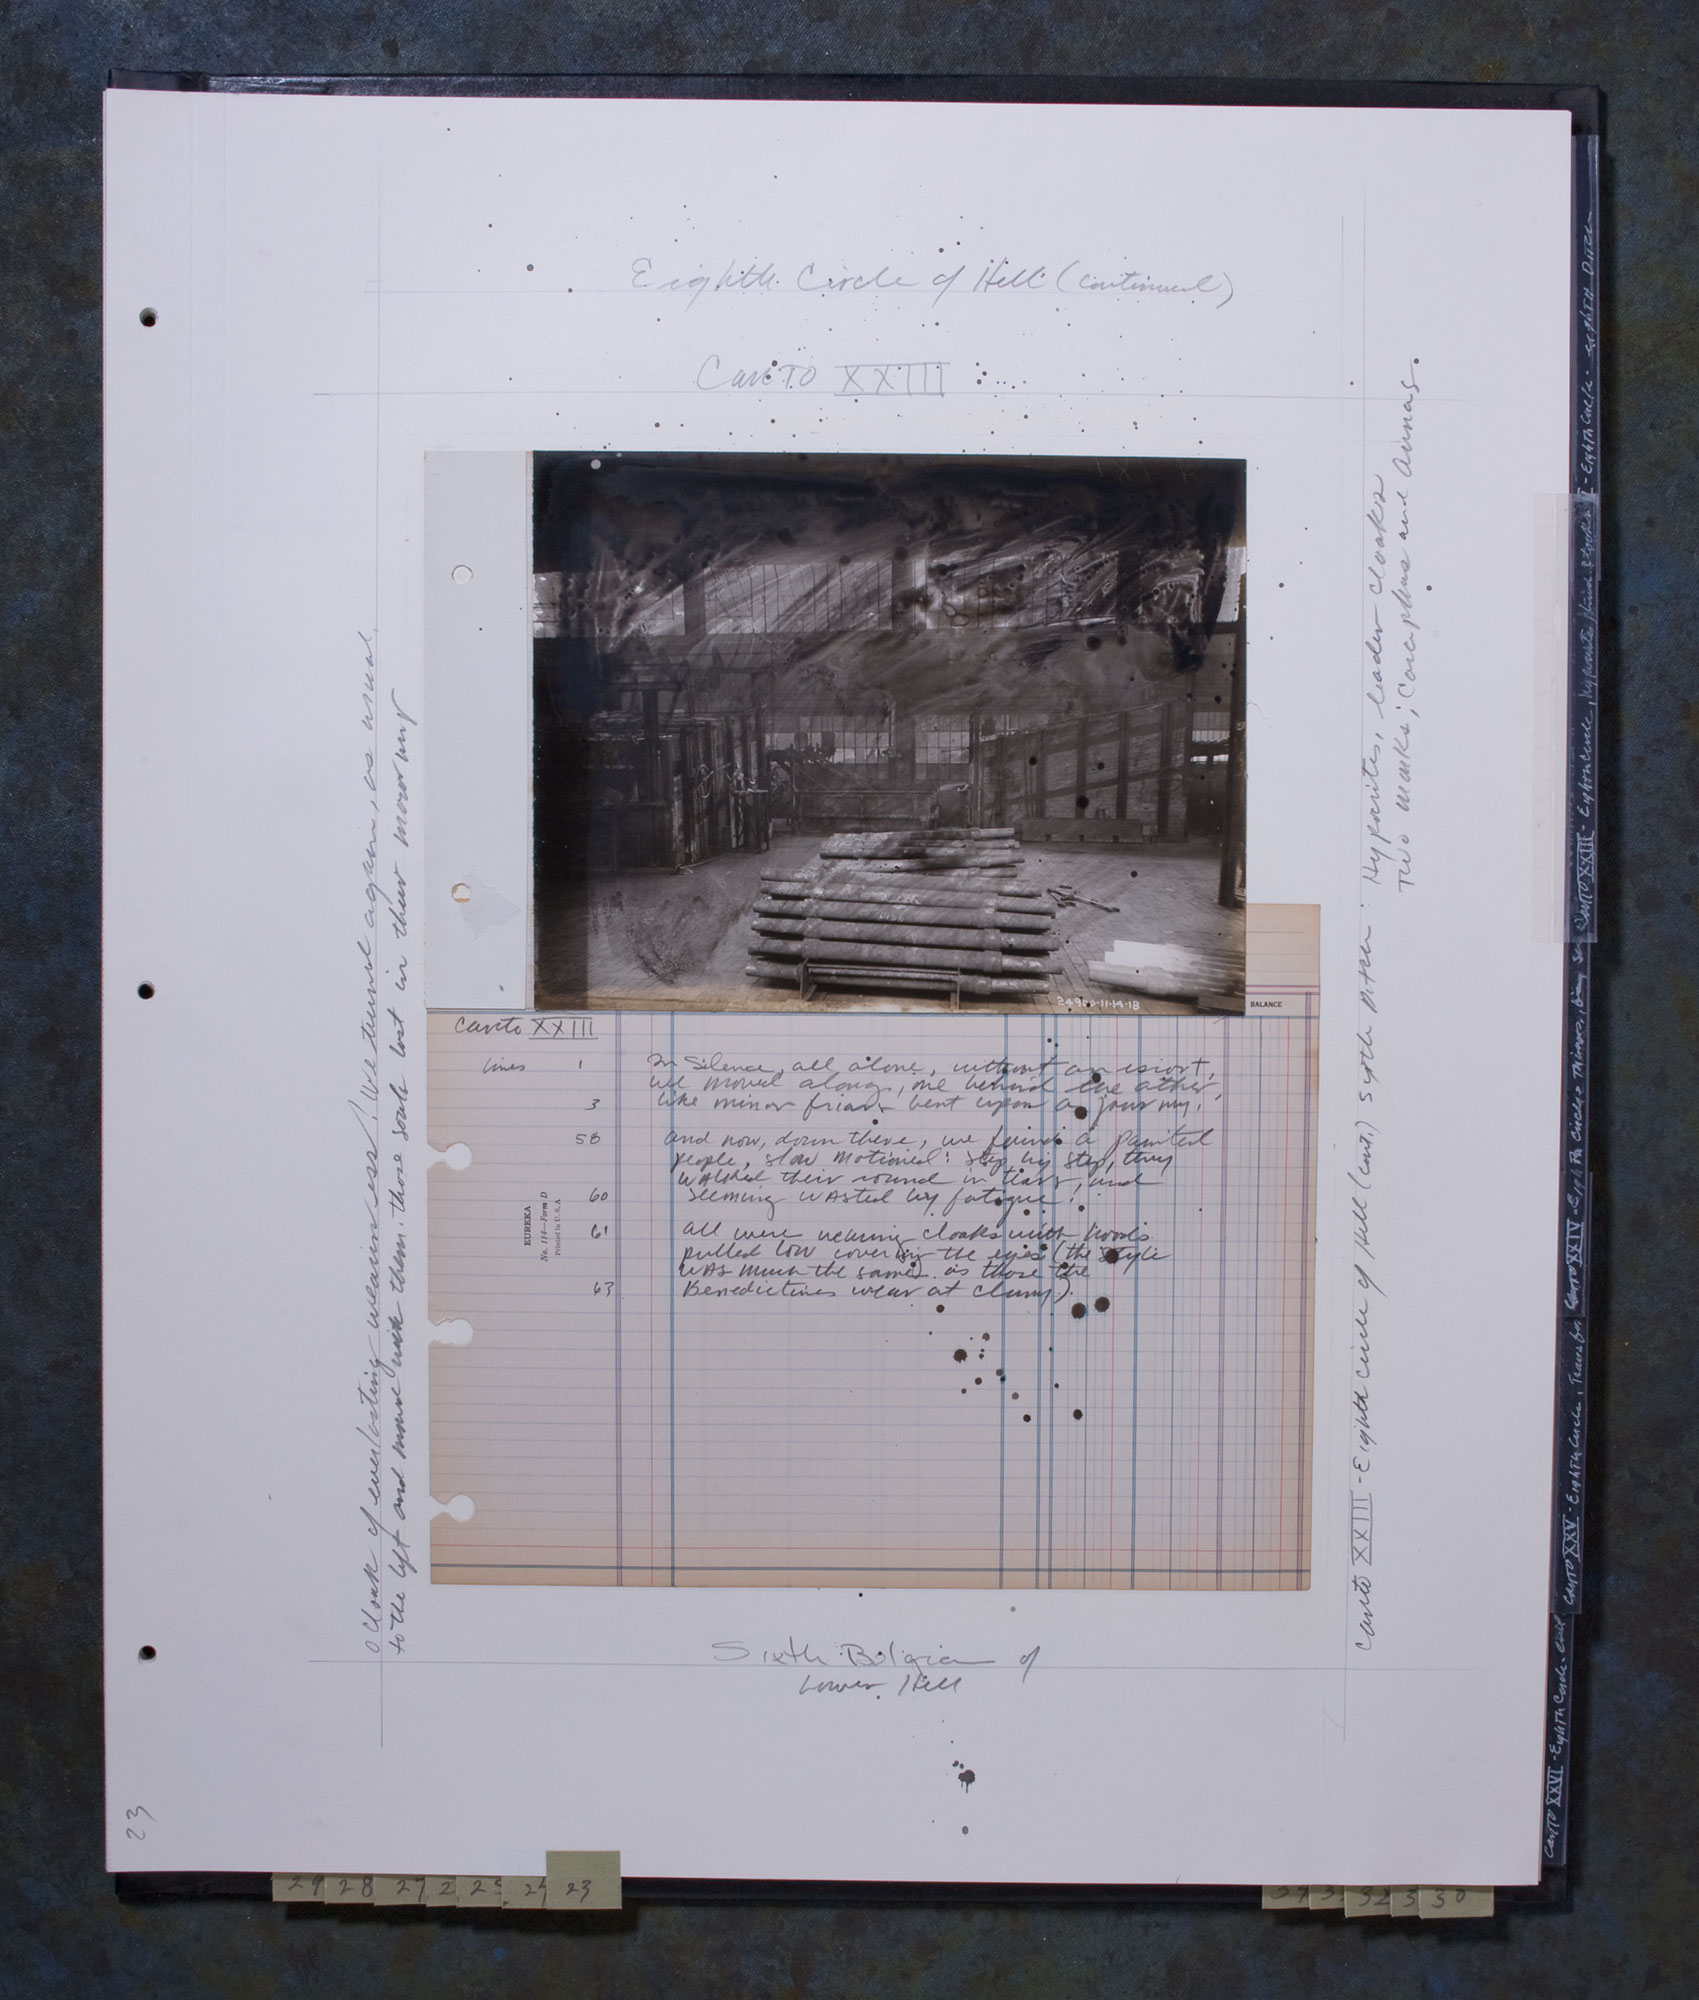 Eighth Circle of Hell (continued)
Canto XXIII
24900-11-14-18
BALANCE
Canto XXIII
lines 1 In silence, all alone, without an escort,
we moved along, one behind the other,
3 like minor friars bent upon a journey.
58 and now, down there, we found a painted
people, slow motioned: step by step, they
walked their round in tears, and
60 seeming wasted by fatigue.
61 all were wearing cloaks with hoods
pulled low covering the eyes (the style
was much the same as those the
63 Benedictines wear at Cluny).
EUREKA
No. 114—Form D
Printed in U.S.A
Sixth Bolgia of
Lower Hell
O cloak of everlasting weariness! We turned again, as usual,
to the left and move with them, those souls lost in their mourning
Canto XXIII - Eighth circle of Hell (cont.) Sixth Ditch: Hypocrites, leaden cloaks
Two monks; Caiaphas and Annas.
23
29 28 27 2 25 24 23
32 3 30
Canto XXIII - Eighth Circle,
Canto XXIV - Eighth Circle
Canto XXV - Eighth Circle,
Canto XXVI - Eighth Circle